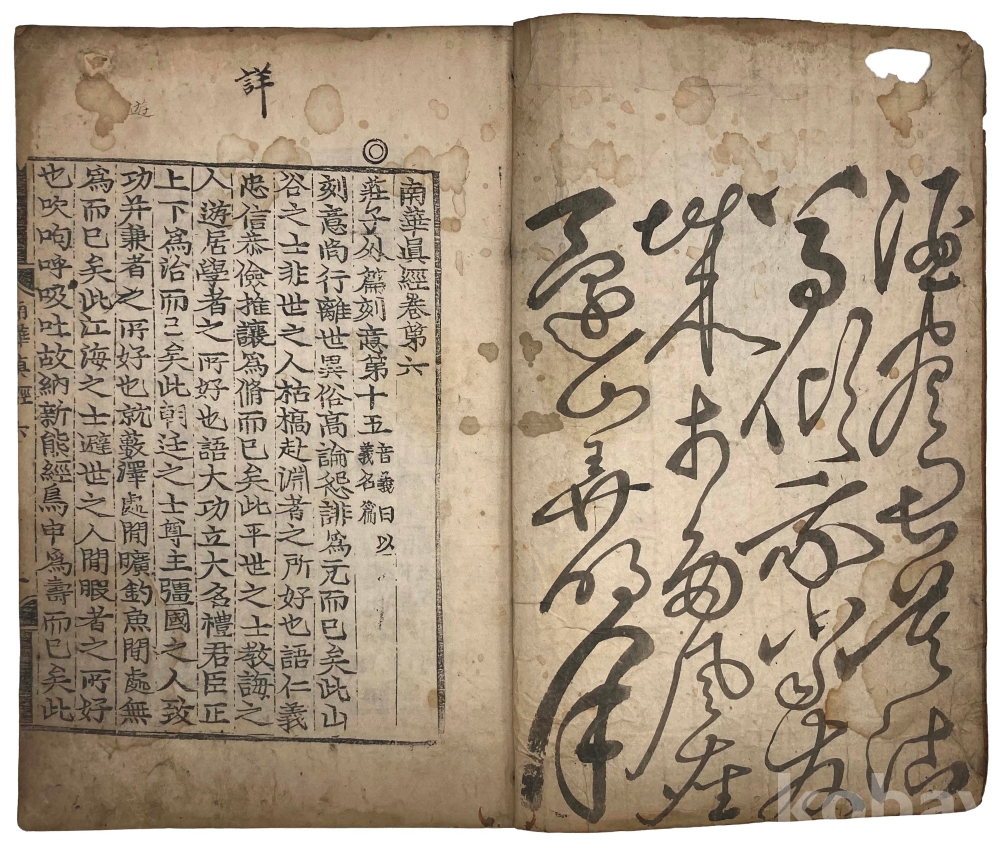 酒盡君莫沽
壺傾我當發
城市多風塵
還山弄明月
詳
遊
◎
南華眞經卷第六
莊子外篇刻意第十五 音義曰以義名篇
刻意尚行離世異俗高論怨誹爲亢而已矣此山
谷之士非世之人枯槁赴淵者之所好也語仁義
忠信恭儉推讓爲脩而已矣此平世之士教誨之
人遊居學者之所好也語大功立大名禮君臣正
上下爲治而已矣此朝廷之士尊主彊國之人致
功并兼者之所好也就藪澤處閒曠釣魚閒處無
爲而已矣此江海之士避世之人閒暇者之所好
也吹呴呼吸吐故納新熊經鳥申爲壽而已矣此
南華眞經六
kobay